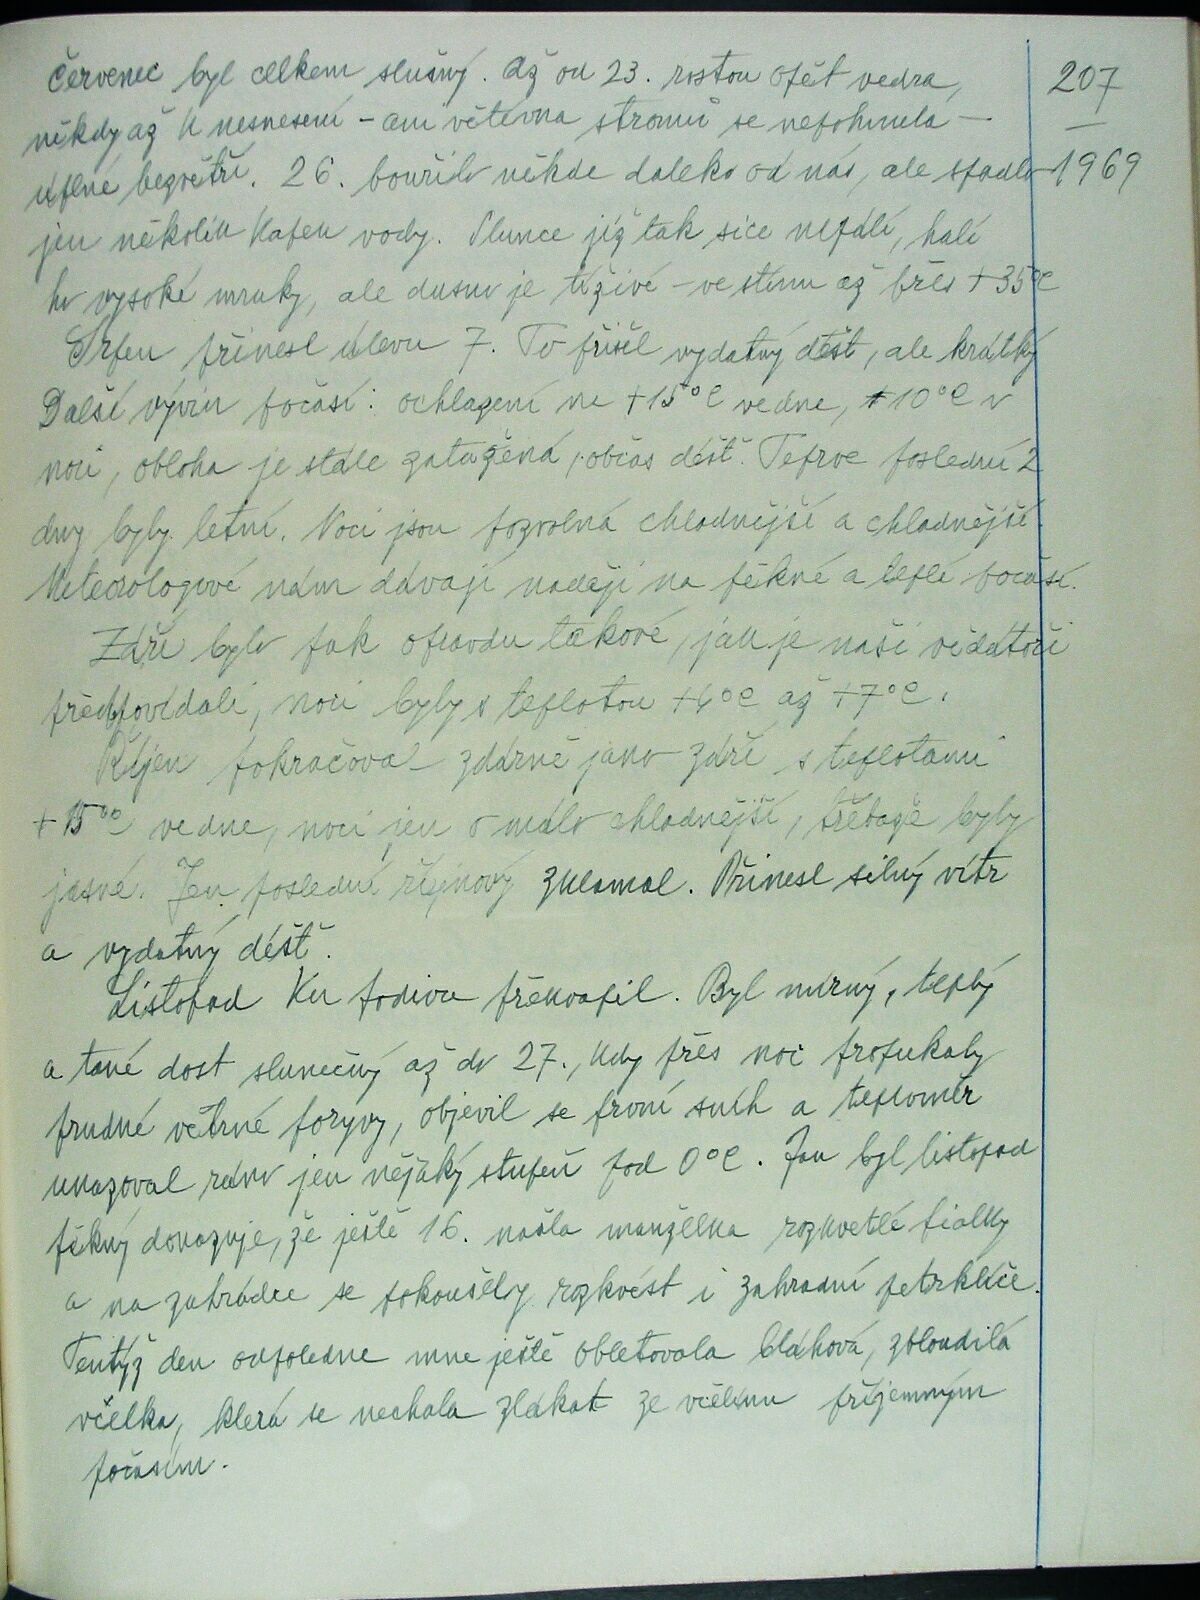 Červenec byl celkem slušný. Až od 23. rostou opět vedra,
207
někdy až k nesnesení – ani větévka stromů se nepohnula –
úplné bezvětří. 26. bouřilo někde daleko od nás, ale spadlo
1969
jen několik kapek vody. Slunce již tak sice nepálí, halí
ho vysoké mraky, ale dusno je tíživé – ve stínu až přes +35°C
Srpen přinesl úlevu 7. To přišel vydatný déšť, ale krátký
Další vývin počasí: ochlazení na +15°C ve dne, +10°C v
noci, obloha je stále zatažená, občas déšť. Teprve poslední 2
dny byly letní. Noci jsou pozvolna chladnější a chladnější.
Meteorologové nám dávají naději na pěkné a teplé počasí.
Září bylo pak opravdu takové, jak je naši vědátoři
předpovídali, noci byly s teplotou +6°C až +7°C.
Říjen pokračoval zdárně jako září s teplotami
+15°C ve dne, noci jen o málo chladnější, třebaže byly
jasné. Jen poslední říjnový zklamal. Přinesl silný vítr
a vydatný déšť.
Listopad ku podivu překvapil. Byl mírný, teplý
a také dost slunečný až do 27., kdy přes noc profukaly
prudké větrné poryvy, objevil se první sníh a teploměr
ukazoval ráno jen nějaký stupeň pod 0°C. Jak byl listopad
pěkný dokazuje, že ještě 16. našla manželka rozkvetlé fialky
a na zahrádce se pokoušely rozkvést i zahradní petrklíče.
Tentýž den odpoledne mne ještě obletovala bláhová, zbloudilá
včelka, která se nechala zlákat ze včelínu příjemným
počasím.